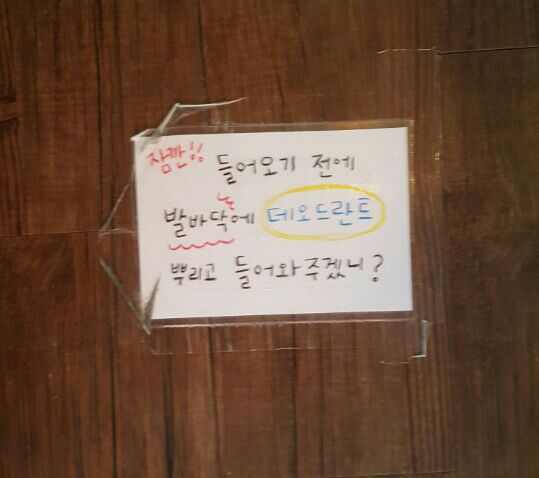 잠깐!! 들어오기 전에
발바닥에 데오드란트
뿌리고 들어와주겠니?